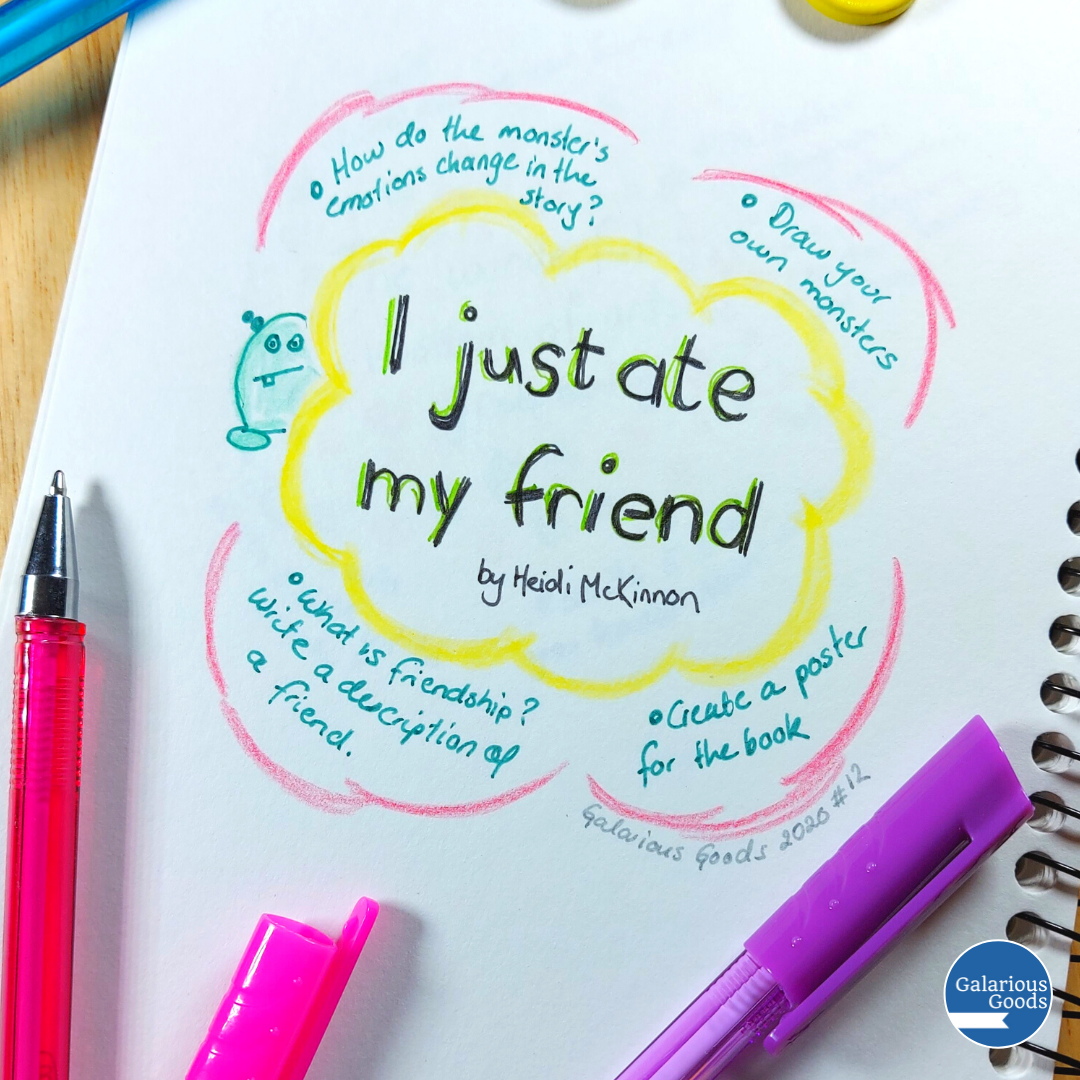 • How do the monster's
emotions change in the
story?
• Draw your
own monsters
I just ate
my friend
by Heidi McKinnon
• What is friendship?
Write a description of
a friend.
• Create a poster
for the book
Galarious Goods 2020 #12
Galarious
Goods